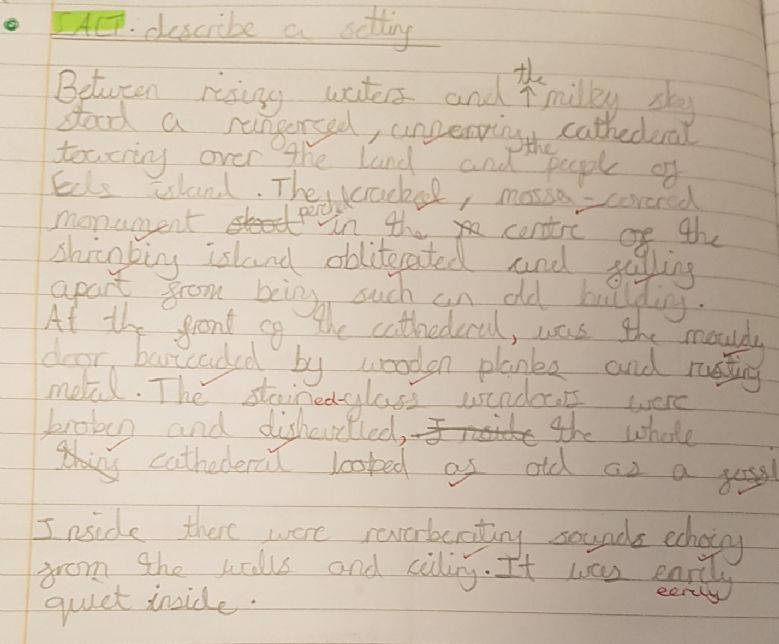 SALT. describe a setting
Between rising waters and the milky sky
stood a reinforced, unnerving cathederal
towering over the land and the people of
Eels island. The cracked, mossa-covered
monument stood perched in the centre of the
shrinking island obliterated and falling
apart from being such an old building.
At the front of the cathederal, was the mouldy
door barecaded by wooden planks and rusting
metal. The stained-glass windows were
broken and dishevelled, Inside the whole
thing cathederal looked as old as a fossil
Inside there were reverberating sounds echoing
from the walls and ceiling. It was earily
eerily
quiet inside.